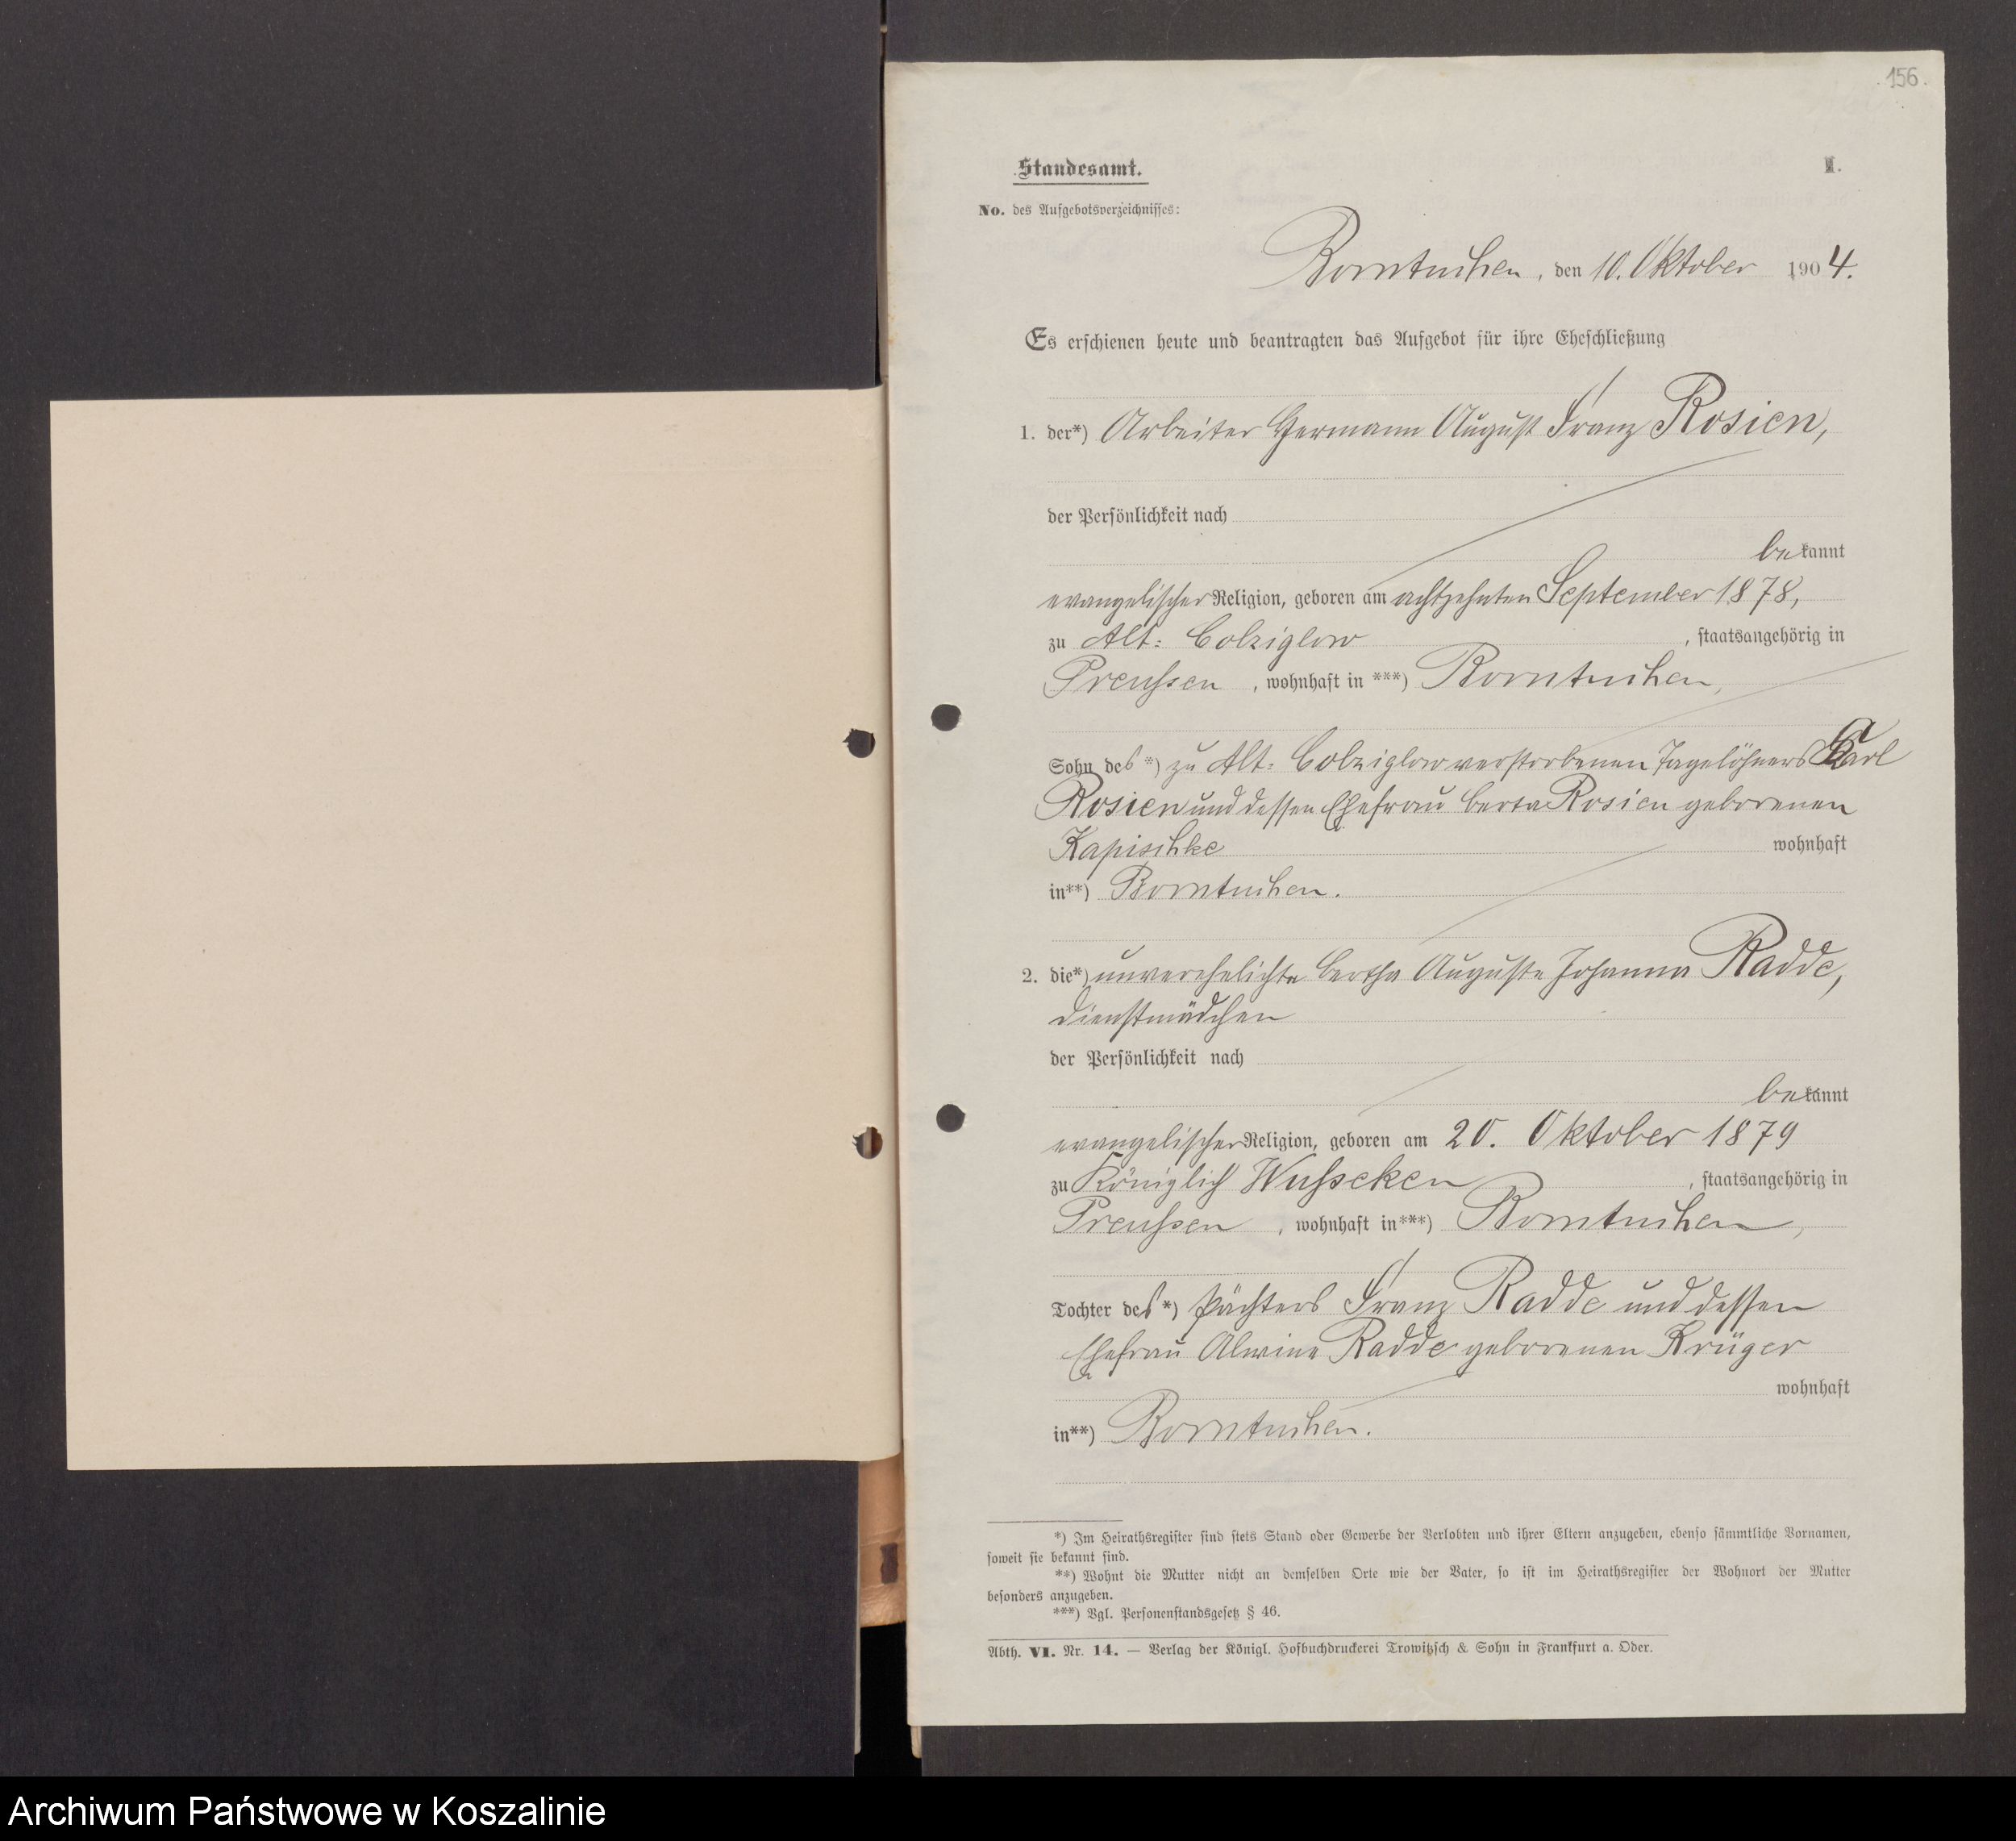 156.
Standesamt.
II.
No. des Aufgebotsverzeichnisses:
Borntuchen, den 10. Oktober 1904.
Es erschienen heute und beantragten das Aufgebot für ihre Eheschließung
1. der*) Arbeiter Hermann August Franz Rosien,
der Persönlichkeit nach
bekannt
evangelischer Religion, geboren am achtzehnten September 1878,
zu Alt-Colziglow, staatsangehörig in
Preussen, wohnhaft in ***) Borntuchen,
Sohn des *) zu Alt-Colziglow verstorbenen Tagelöhners Carl
Rosien und dessen Ehefrau Berta Rosien geborenen
Kapischke wohnhaft
in**) Borntuchen.
2. die*) unverehelichte Bertha Auguste Johanna Radde,
Dienstmädchen
der Persönlichkeit nach
bekannt
evangelischer Religion, geboren am 20. Oktober 1879
zu Königlich Wusseken, staatsangehörig in
Preussen, wohnhaft in***) Borntuchen,
Tochter des *) Pächters Franz Radde und dessen
Ehefrau Alwine Radde geborenen Krüger
wohnhaft
in**) Borntuchen.
*) Im Heirathsregister sind stets Stand oder Gewerbe der Verlobten und ihrer Eltern anzugeben, ebenso sämmtliche Vornamen,
soweit sie bekannt sind.
**) Wohnt die Mutter nicht an demselben Orte wie der Vater, so ist im Heirathsregister der Wohnort der Mutter
besonders anzugeben.
***) Vgl. Personenstandsgesetz § 46.
Abth. VI. Nr. 14. — Verlag der Königl. Hofbuchdruckerei Trowitzsch & Sohn in Frankfurt a. Oder.
Archiwum Państwowe w Koszalinie